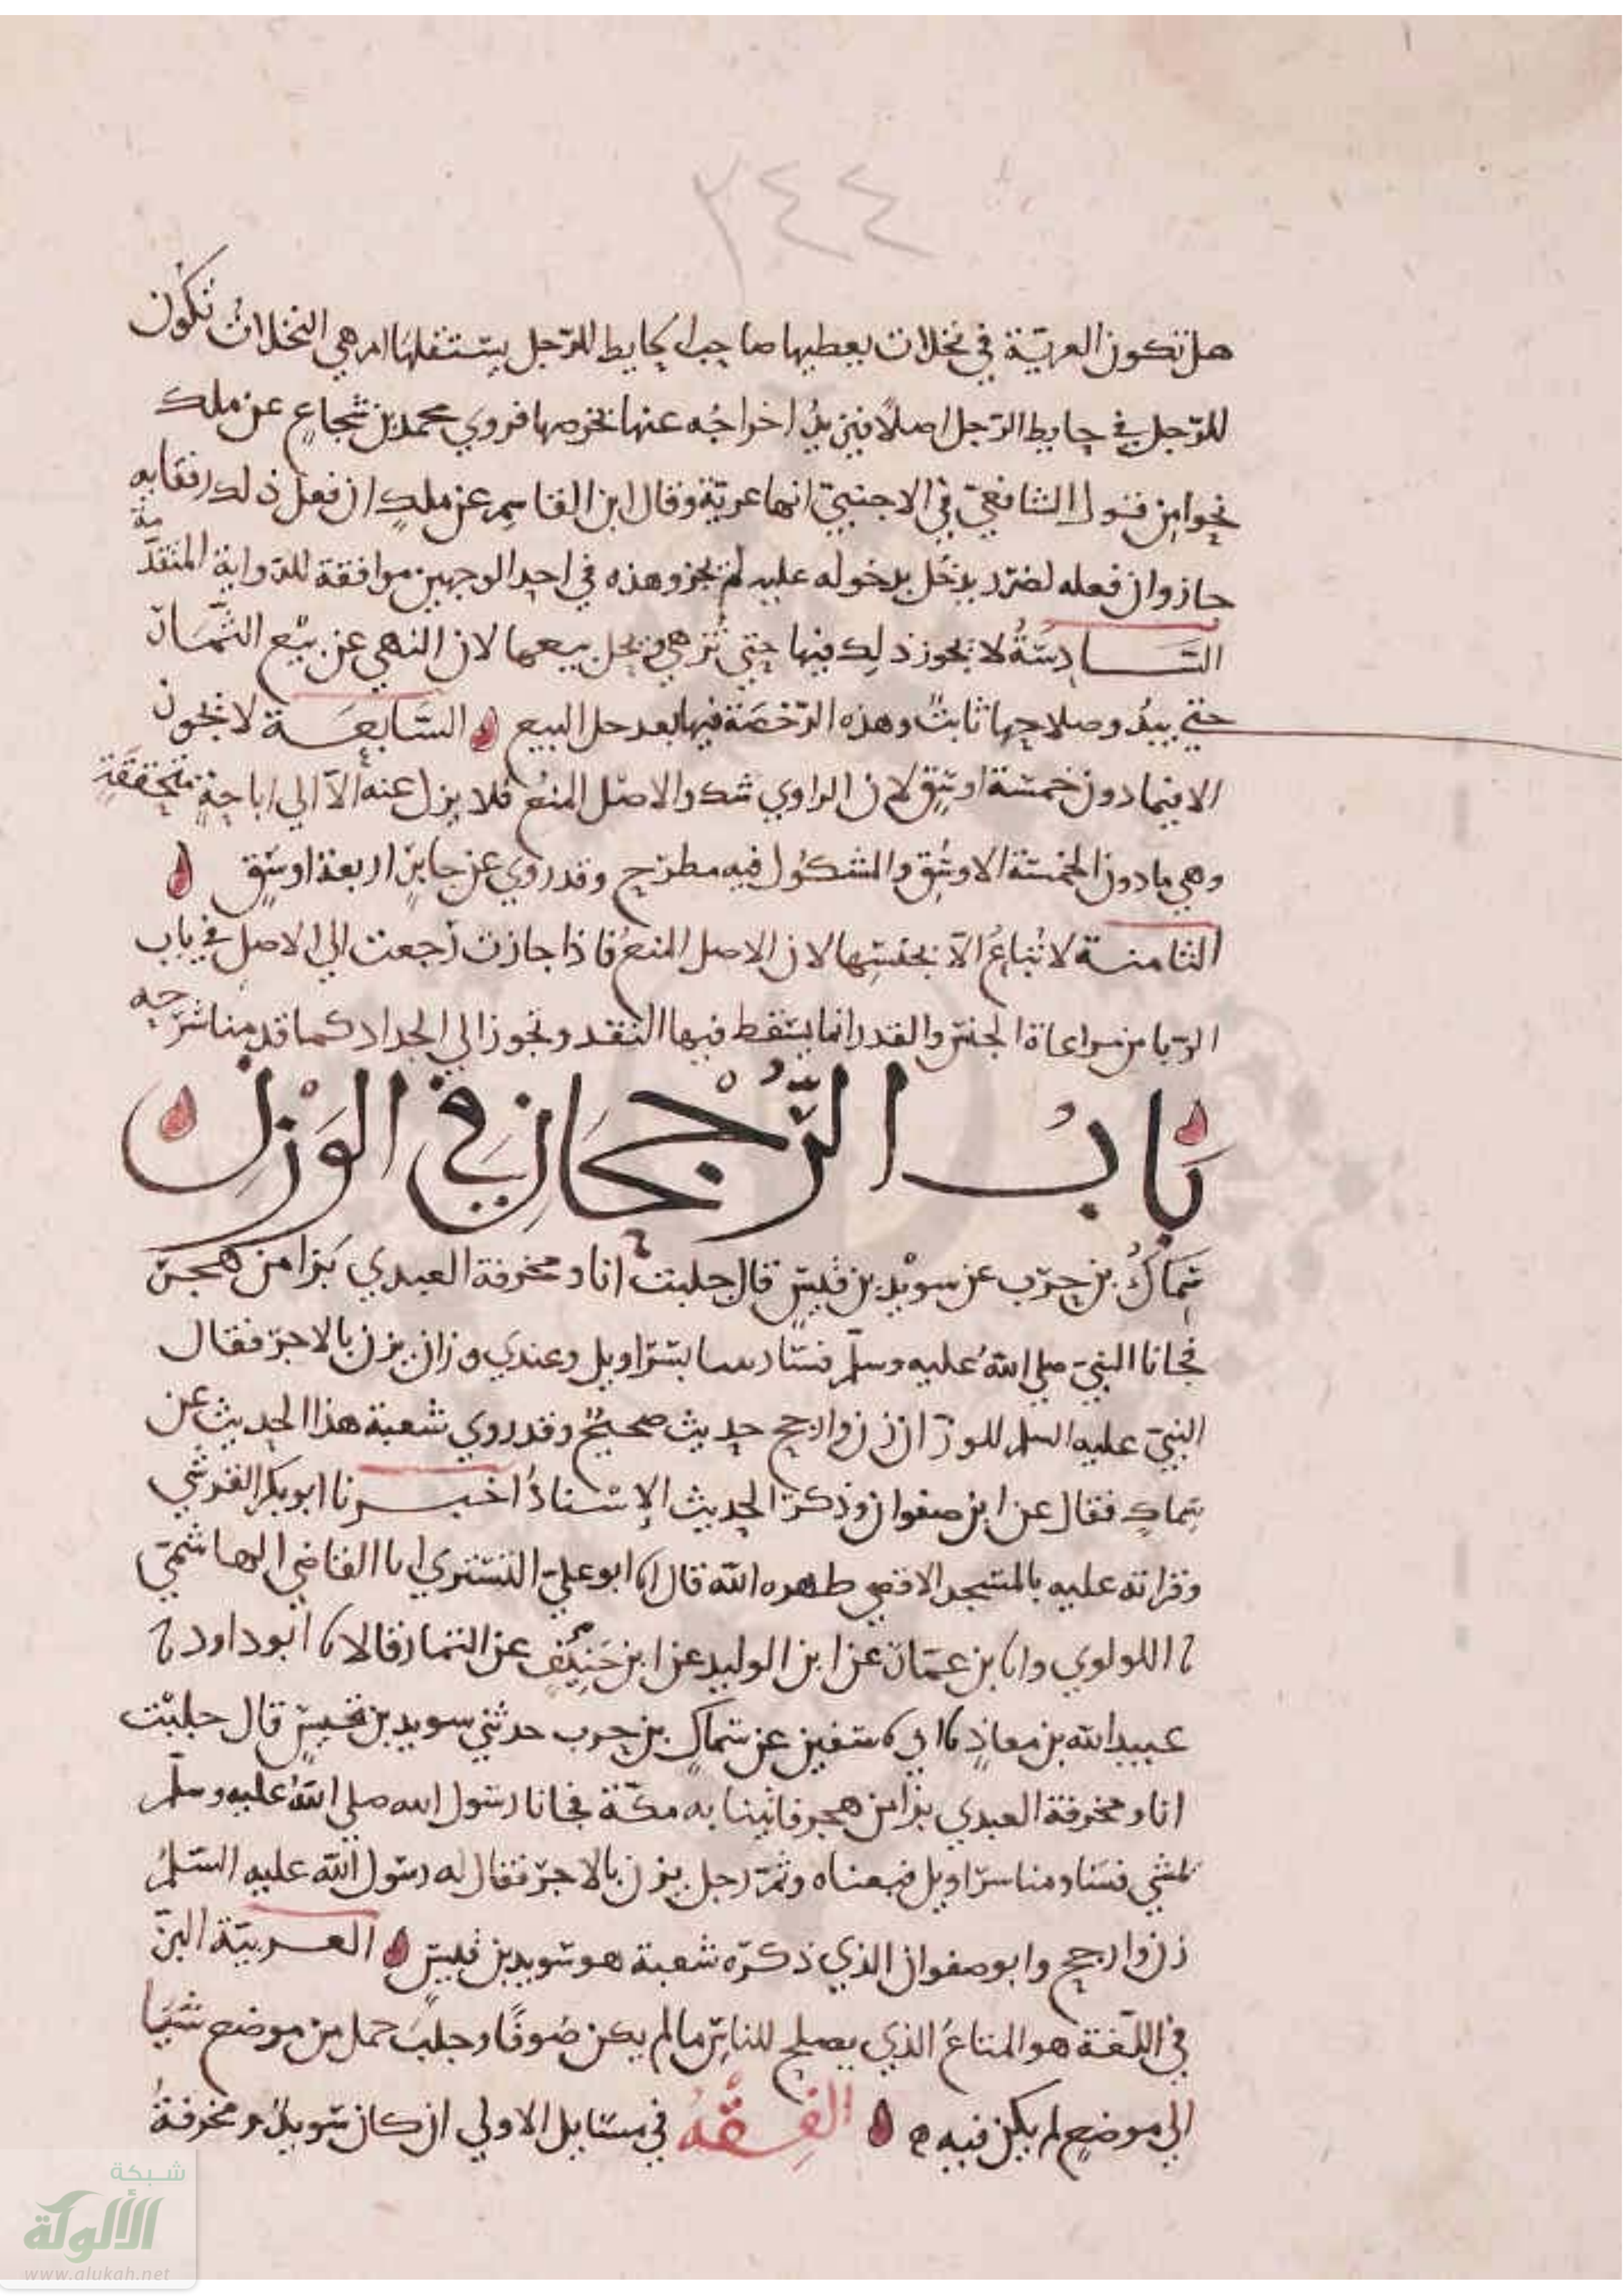 ٢٤٤
هل تكون العرية في نخلات يعطيها صاحب الحايط للرجل يستثقلها ام هي النخلات تكون
للرجل في حايط الرجل اصلا فيريد اخراجه عنها بخرصها فروي محمد بن شجاع عن ملك
نحوا من قول الشافعي في الاجنبي انها عرية وقال ابن القاسم عن ملك ان فعل ذلك رفقا به
جاز وان فعله لضرر يدخل بدخوله عليه لم يجز وهذه في احد الوجهين موافقة للرواية المتقدمة
السادسة لا يجوز ذلك فيها حتى تزهي ويحل بيعها لان النهي عن بيع الثمار
حتى يبدو صلاحها ثابت وهذه الرخصة فيها بعد حل البيع السابعة لا تجوز
الا فيما دون خمسة اوسق لان الراوي شك والاصل المنع فلا يزل عنه الا الى اباحة متحققة
وهي ما دون الخمسة الاوسق والمشكوك فيه مطرح وقد روي عن جابر اربعة اوسق
الثامنة لا تباع الا بجنسها لان الاصل المنع فاذا جازت رجعت الى الاصل في باب
الربا من مراعاة الجنس والقدر انما يسقط فيها النقد وتجوز الى الجداد كما قدمنا شرحه
باب الرجحان في الوزن
سماك بن حرب عن سويد بن قيس قال جلبت انا ومخرفة العبدي بزا من هجر
فجانا النبي صلى الله عليه وسلم فساومنا بسراويل وعندي وزان يزن بالاجر فقال
النبي عليه السلم للوزان زن وارجح حديث صحيح وقد روي شعبة هذا الحديث عن
سماك فقال عن ابن صفوان وذكر الحديث الإسناد اخبرنا ابو بكر الفرشي
وقراته عليه بالمسجد الاقصى طهره الله قال انا ابو علي التستري انا القاضي الهاشمي
نا اللولوي وانا بن عمار عن ابن الوليد عن ابن عن التمار قالا نا ابو داود نا
عبيد الله بن معاذ نا ابي نا سفين عن سماك بن حرب حدثني سويد بن قيس قال جلبت
انا ومخرفة العبدي بزا من هجر فاتينا به مكة فجانا رسول الله صلى الله عليه وسلم
يمشي فساومنا سراويل فبعناه وثم رجل يزن بالاجر فقال له رسول الله عليه السلم
زن وارجح وابو صفوان الذي ذكره شعبة هو سويد بن قيس العربية البز
في اللغة هو المتاع الذي يصلح للناس ما لم يكن صوفا وجلب حمل من موضع شيا
الى موضع لم يكن فيه الفقه في مسايل الاولى ان كان سويد ومخرفة
شبكة
الألوكة
www.alukah.net